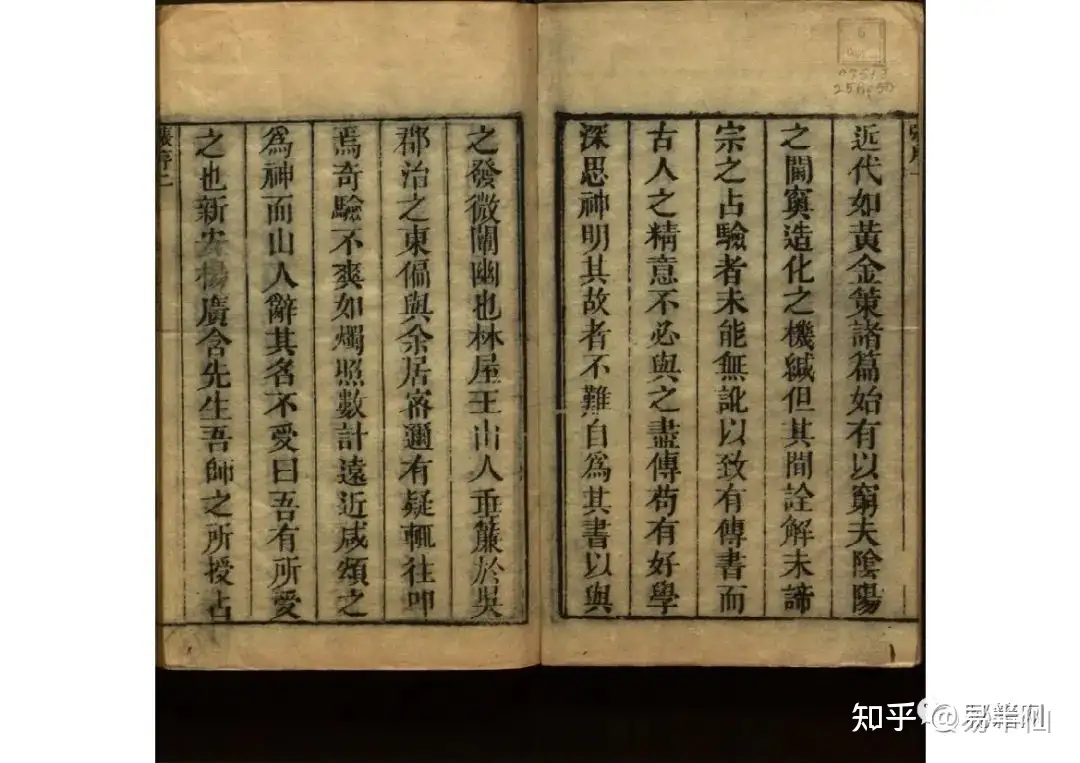 近代如黃金策諸篇始有以窮夫陰陽
之閫奧造化之機緘但其間詮解未諦
宗之占驗者未能無訛以致有傳書而
古人之精意不必與之盡傳苟有好學
深思神明其故者不難自為其書以與
之發微闡幽也林屋王山人垂簾於吳
郡治之東偏與余居密邇有疑輒往叩
焉奇驗不爽如燭照數計遠近咸頌之
為神而山人辭其名不受曰吾有所受
之也新安楊廣含先生吾師之所授占
張序二
知乎 @易籍网